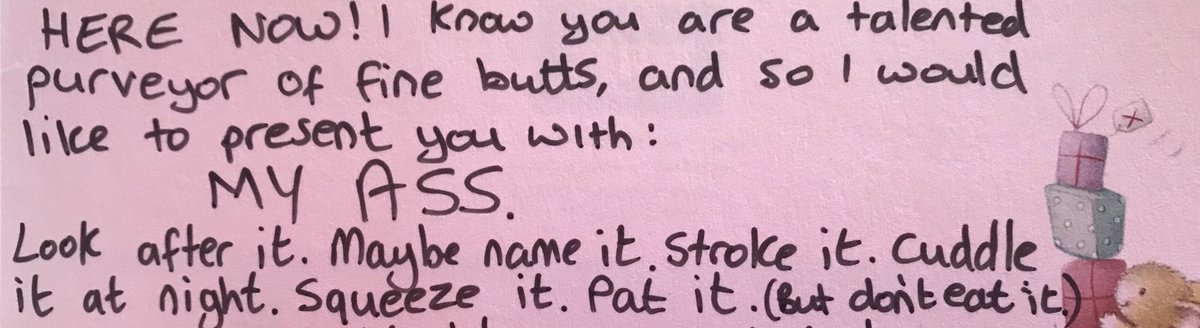 HERE NOW! I know you are a talented
purveyor of fine butts, and so I would
like to present you with:
MY ASS.
Look after it. Maybe name it. Stroke it. Cuddle
it at night. Squeeze it. Pat it. (But don't eat it.)